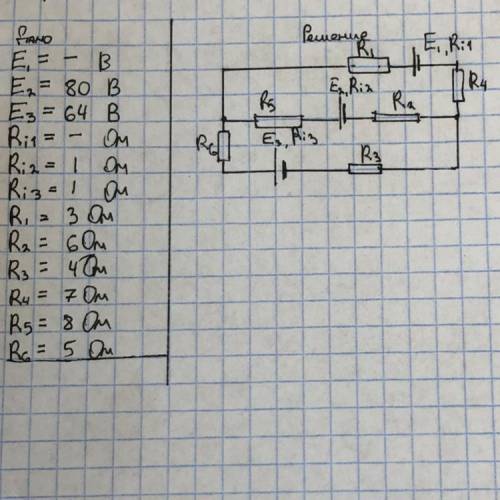 Дано
E₁ = - В
E₂ = 80 В
E₃ = 64 В
Ri1 = - Ом
Ri2 = 1 Ом
Ri3 = 1 Ом
R₁ = 3 Ом
R₂ = 6 Ом
R₃ = 4 Ом
R₄ = 7 Ом
R₅ = 8 Ом
R₆ = 5 Ом
Решение
R₁ E₁, Ri1
R₄
R₅ E₂, Ri2 R₂
R₆ E₃, Ri3 R₃